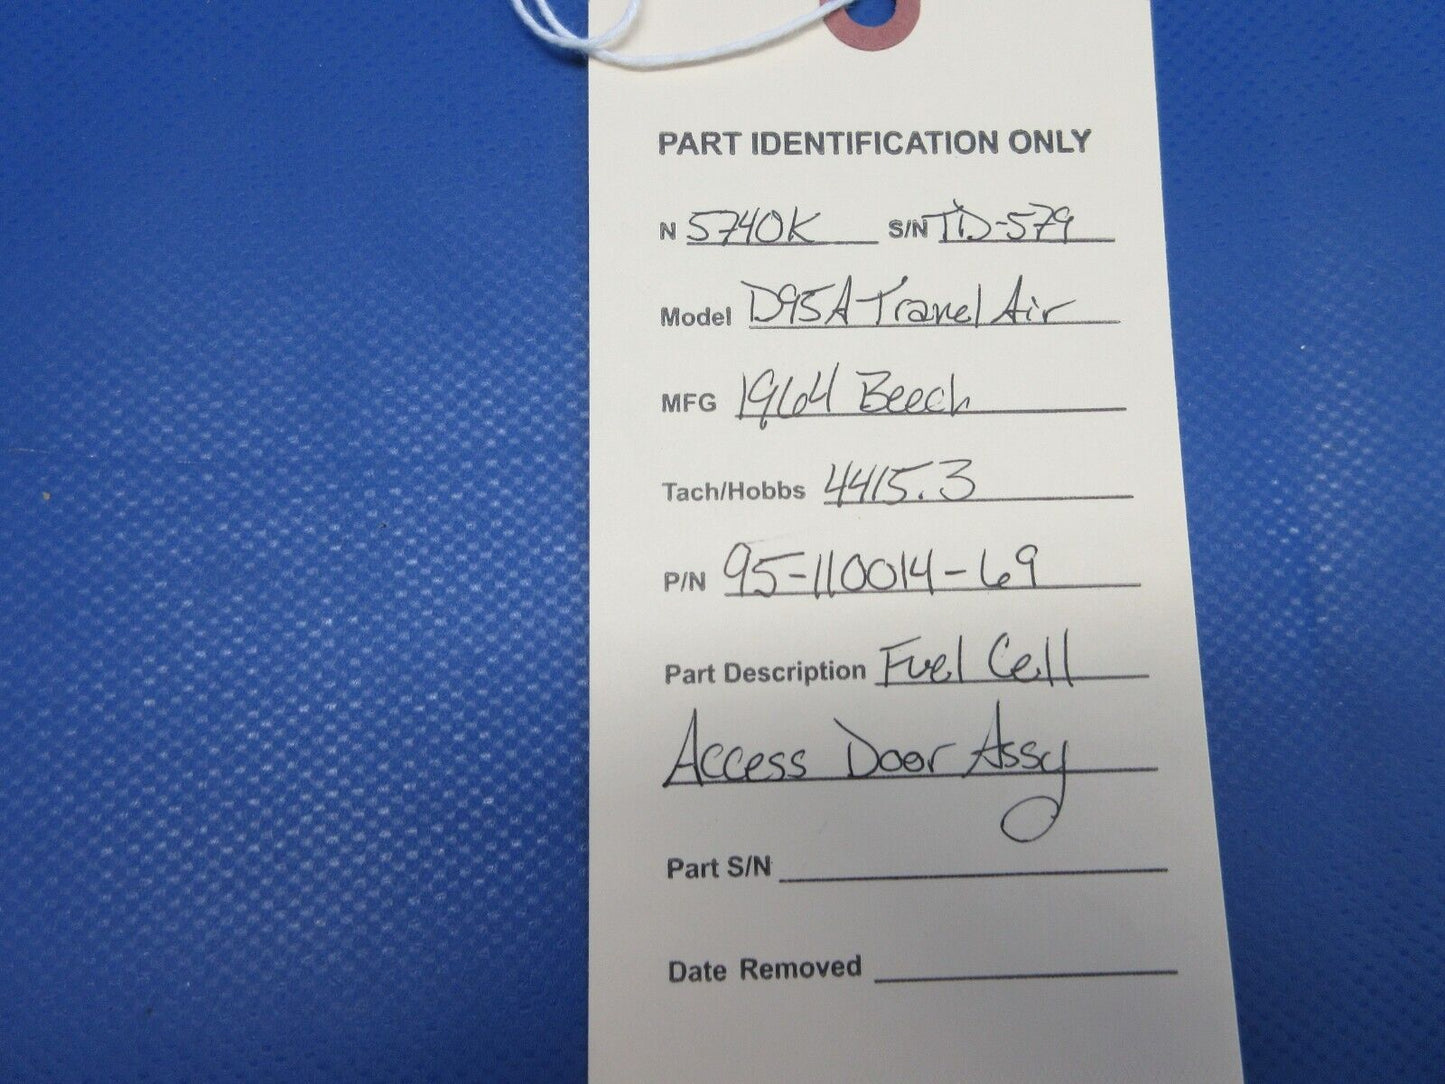 PART IDENTIFICATION ONLY
N 5740K S/N TD-579
Model D95A Travel Air
MFG 1964 Beech
Tach/Hobbs 4415.3
P/N 95-110014-69
Part Description Fuel Cell
Access Door Assy
Part S/N
Date Removed